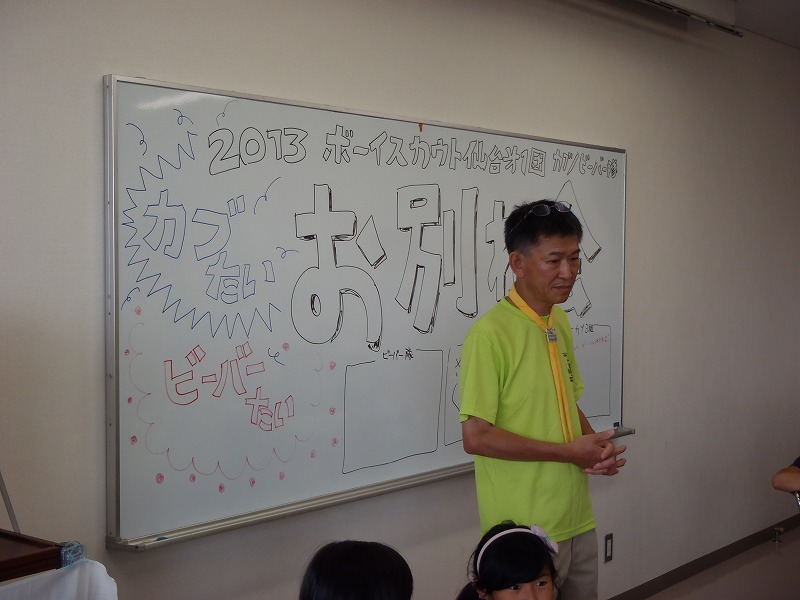 2013 ボーイスカウト仙台才1団 カブ/ビーバー隊
カブ
たい
お別
ビーバー
たい
ビーバー隊